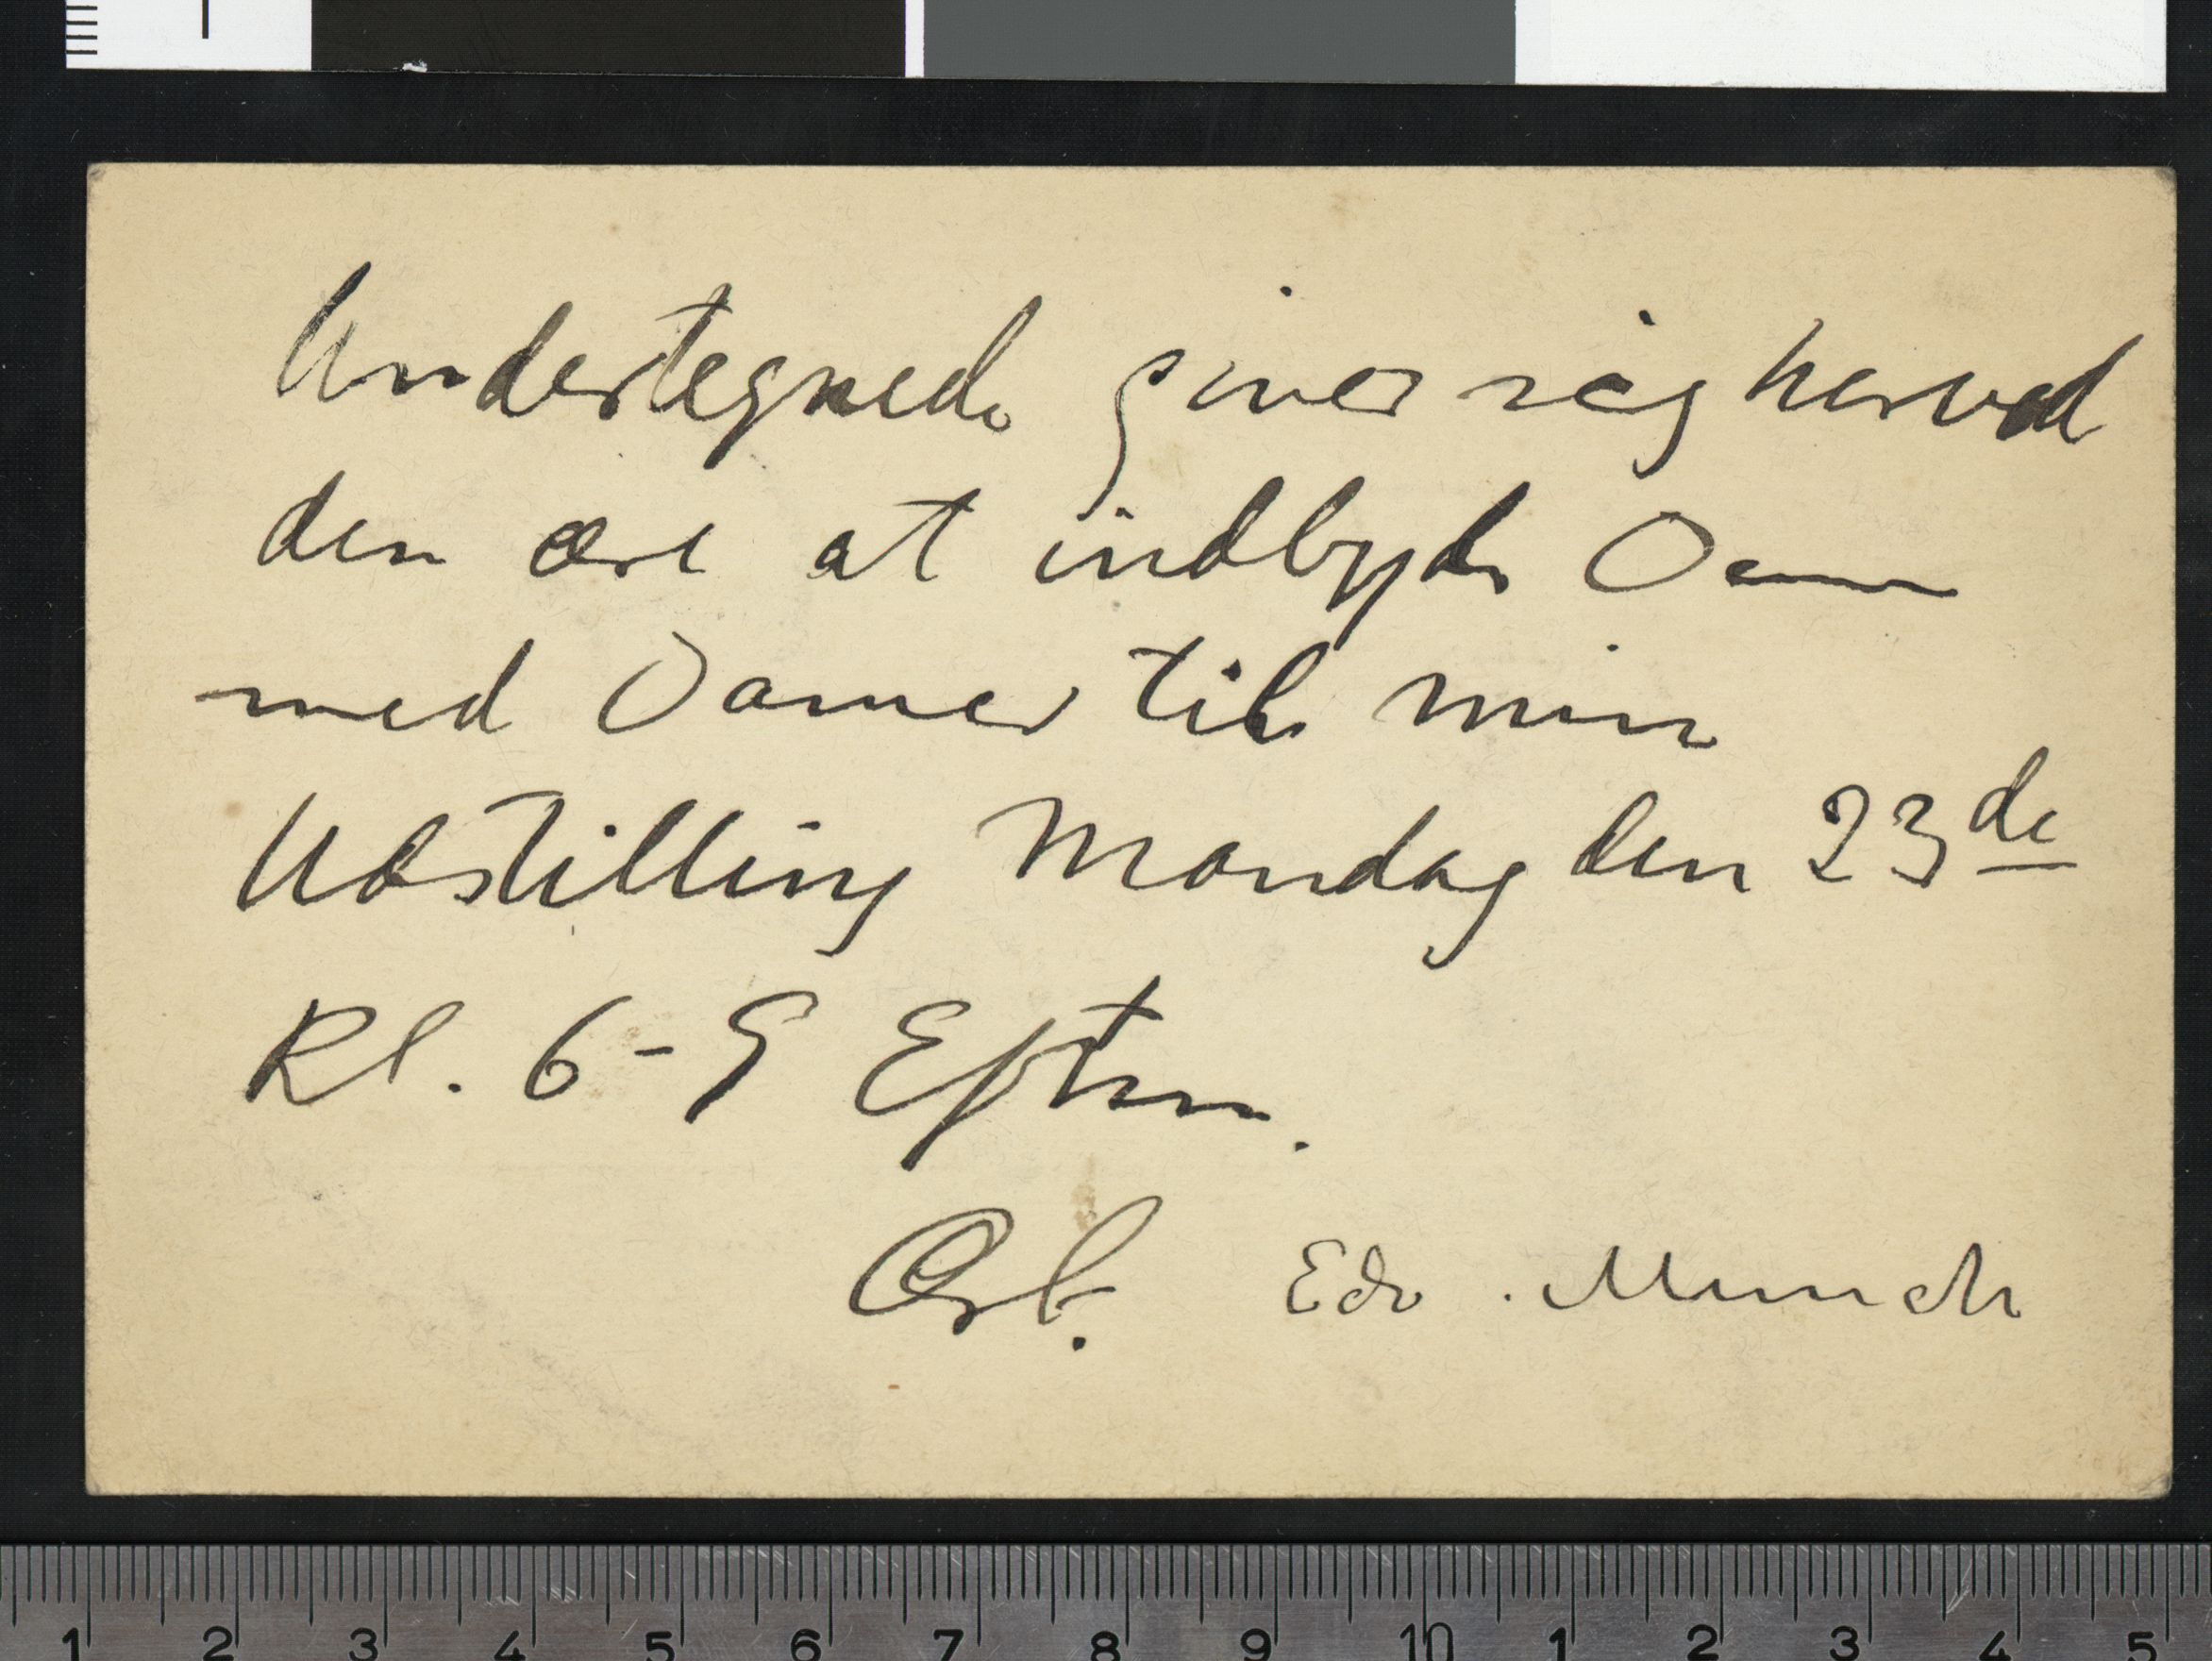 Undertegnede giver sig herved
den ære at indbyde Dem
med Damer til min
Udstilling Mandag den 23de
Kl. 6-9 Efterm.
Ærb. Edv. Munch
1 2 3 4 5 6 7 8 9 10 1 2 3 4 5